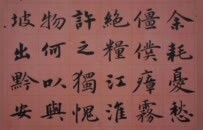 余耗憂愁
僵僕瘴霧
絕糧江淮
許之獨愧
物何以與
坡出黔安